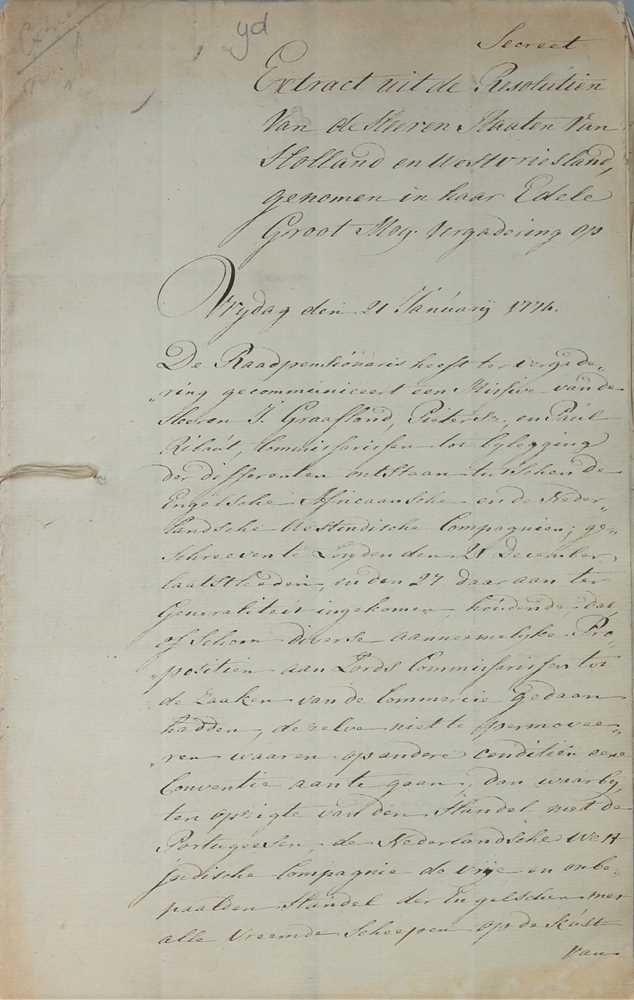 yd
Secreet
Extract uit de Resolutien
van de Heeren Staaten van
Holland en Westvriesland,
genomen in haar Edele
Groot Mog. Vergadering op
Vrydag den 21 Januarij
De Raadpensionaris heeft ter vergade-
„ring gecommuniceert een Missive van de
Heeren J. Graafland, Pietersz., en Paul
Commissarissen tot bylegging
der differenten ontstaan tusschen de
Engelsche Africaansche en de Neder-
„landsche Westindische Compagnien, ge-
schreeven te den 21 December
laatstleeden, en den 27 daar aan ter
Generaliteit ingekomen, houdende, dat
of schoon diverse aanneemelyke Pro-
„positien aan Lords Commissarissen tot
de Zaaken van de Commercie gedaan
hadden, dezelve niet te permovee-
„ren waaren op andere conditien eene
Conventie aan te gaan, dan waarby,
ten opzigte van den Handel met de
Portugeesen, de Nederlandsche West
Indische Compagnie de vrije en onbe-
paalden Handel der Engelschen met
alle Vreemde Scheepen op de Kust
van